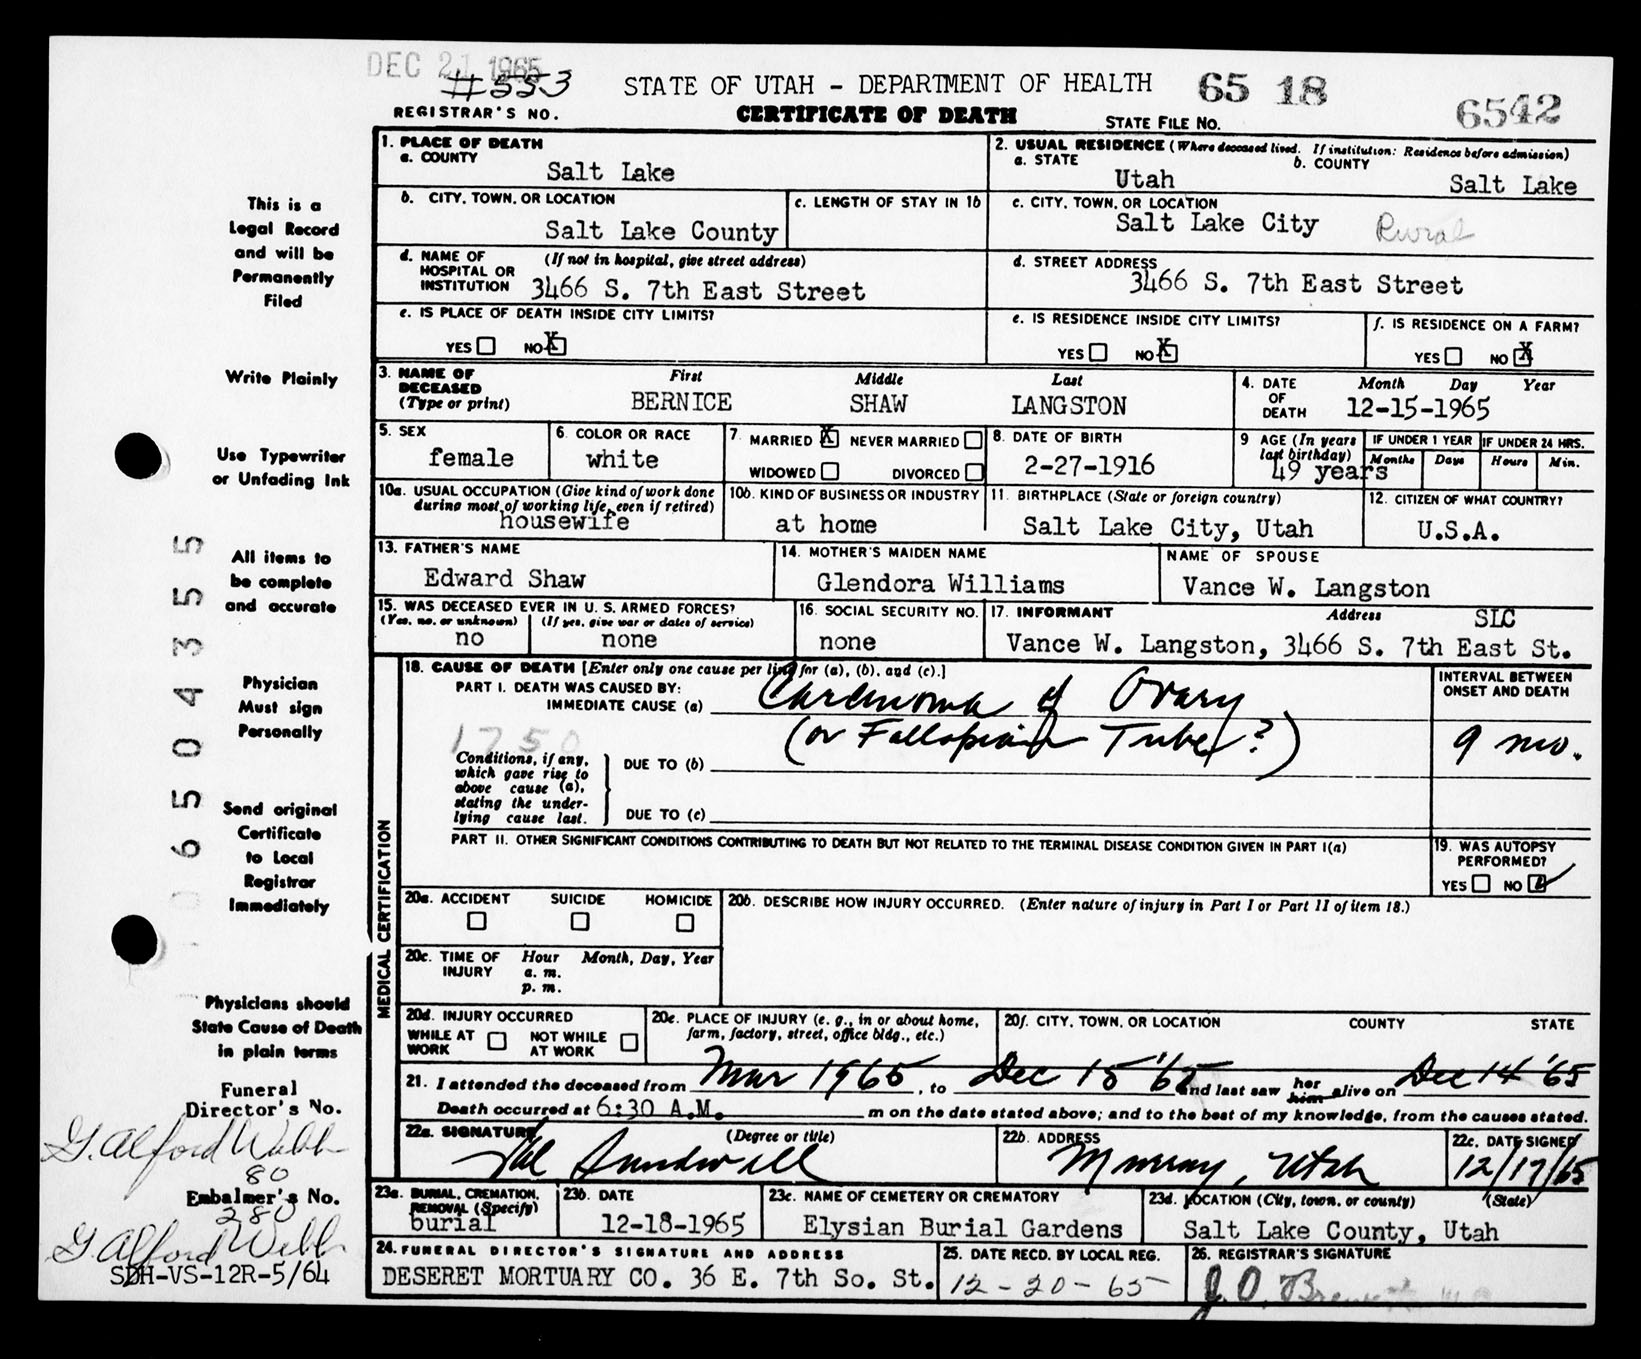 DEC 21 1965
#553
REGISTRAR'S NO.
STATE OF UTAH - DEPARTMENT OF HEALTH
CERTIFICATE OF DEATH
65 18
STATE FILE NO. 6542
This is a
Legal Record
and will be
Permanently
Filed
Write Plainly
Use Typewriter
or Unfading Ink
All items to
be complete
and accurate
Physician
Must sign
Personally
Send original
Certificate
to Local
Registrar
Immediately
Physicians should
State Cause of Death
in plain terms
Funeral
Director's No.
G. Alford Webb
80
Embalmer's No.
280
G Alford Webb
SDH-VS-12R-5/64
0650 4355
1. PLACE OF DEATH
a. COUNTY
Salt Lake
2. USUAL RESIDENCE (Where deceased lived. If institution: Residence before admission)
a. STATE
Utah
b. COUNTY
Salt Lake
b. CITY, TOWN, OR LOCATION
Salt Lake County
c. LENGTH OF STAY IN 1b
c. CITY, TOWN, OR LOCATION
Salt Lake City Rural
d. NAME OF HOSPITAL OR INSTITUTION
(If not in hospital, give street address)
3466 S. 7th East Street
d. STREET ADDRESS
3466 S. 7th East Street
e. IS PLACE OF DEATH INSIDE CITY LIMITS?
YES NO X
e. IS RESIDENCE INSIDE CITY LIMITS?
YES NO X
f. IS RESIDENCE ON A FARM?
YES NO X
3. NAME OF DECEASED
(Type or print)
First Middle Last
BERNICE SHAW LANGSTON
4. DATE OF DEATH
Month Day Year
12-15-1965
5. SEX
female
6. COLOR OR RACE
white
7. MARRIED X NEVER MARRIED
WIDOWED DIVORCED
8. DATE OF BIRTH
2-27-1916
9 AGE (In years last birthday)
49 years
IF UNDER 1 YEAR
Months Days
IF UNDER 24 HRS.
Hours Min.
10a. USUAL OCCUPATION (Give kind of work done during most of working life, even if retired)
housewife
10b. KIND OF BUSINESS OR INDUSTRY
at home
11. BIRTHPLACE (State or foreign country)
Salt Lake City, Utah
12. CITIZEN OF WHAT COUNTRY?
U.S.A.
13. FATHER'S NAME
Edward Shaw
14. MOTHER'S MAIDEN NAME
Glendora Williams
NAME OF SPOUSE
Vance W. Langston
15. WAS DECEASED EVER IN U. S. ARMED FORCES?
(Yes, no, or unknown) (If yes, give war or dates of service)
no none
16. SOCIAL SECURITY NO.
none
17. INFORMANT Address SLC
Vance W. Langston, 3466 S. 7th East St.
MEDICAL CERTIFICATION
18. CAUSE OF DEATH [Enter only one cause per line for (a), (b), and (c).]
PART I. DEATH WAS CAUSED BY:
IMMEDIATE CAUSE (a) Carcinoma of Ovary
(or Fallopian Tube?)
1750
Conditions, if any, which gave rise to above cause (a), stating the underlying cause last.
DUE TO (b)
DUE TO (c)
INTERVAL BETWEEN ONSET AND DEATH
9 mo.
PART II. OTHER SIGNIFICANT CONDITIONS CONTRIBUTING TO DEATH BUT NOT RELATED TO THE TERMINAL DISEASE CONDITION GIVEN IN PART I(a)
19. WAS AUTOPSY PERFORMED?
YES NO
20a. ACCIDENT SUICIDE HOMICIDE
20b. DESCRIBE HOW INJURY OCCURRED. (Enter nature of injury in Part I or Part II of item 18.)
20c. TIME OF INJURY Hour Month, Day, Year
a. m.
p. m.
20d. INJURY OCCURRED
WHILE AT WORK NOT WHILE AT WORK
20e. PLACE OF INJURY (e. g., in or about home, farm, factory, street, office bldg., etc.)
20f. CITY, TOWN, OR LOCATION COUNTY STATE
21. I attended the deceased from Mar 1965, to Dec 15 '65 and last saw her him alive on Dec 14 '65
Death occurred at 6:30 A.M. m on the date stated above; and to the best of my knowledge, from the causes stated.
22a. SIGNATURE (Degree or title)
Val Sundwall
22b. ADDRESS
Murray, Utah
22c. DATE SIGNED
12/17/65
23a. BURIAL, CREMATION, REMOVAL (Specify)
burial
23b. DATE
12-18-1965
23c. NAME OF CEMETERY OR CREMATORY
Elysian Burial Gardens
23d. LOCATION (City, town, or county) (State)
Salt Lake County, Utah
24. FUNERAL DIRECTOR'S SIGNATURE AND ADDRESS
DESERET MORTUARY CO. 36 E. 7th So. St.
25. DATE RECD. BY LOCAL REG.
12-20-65
26. REGISTRAR'S SIGNATURE
J. O.